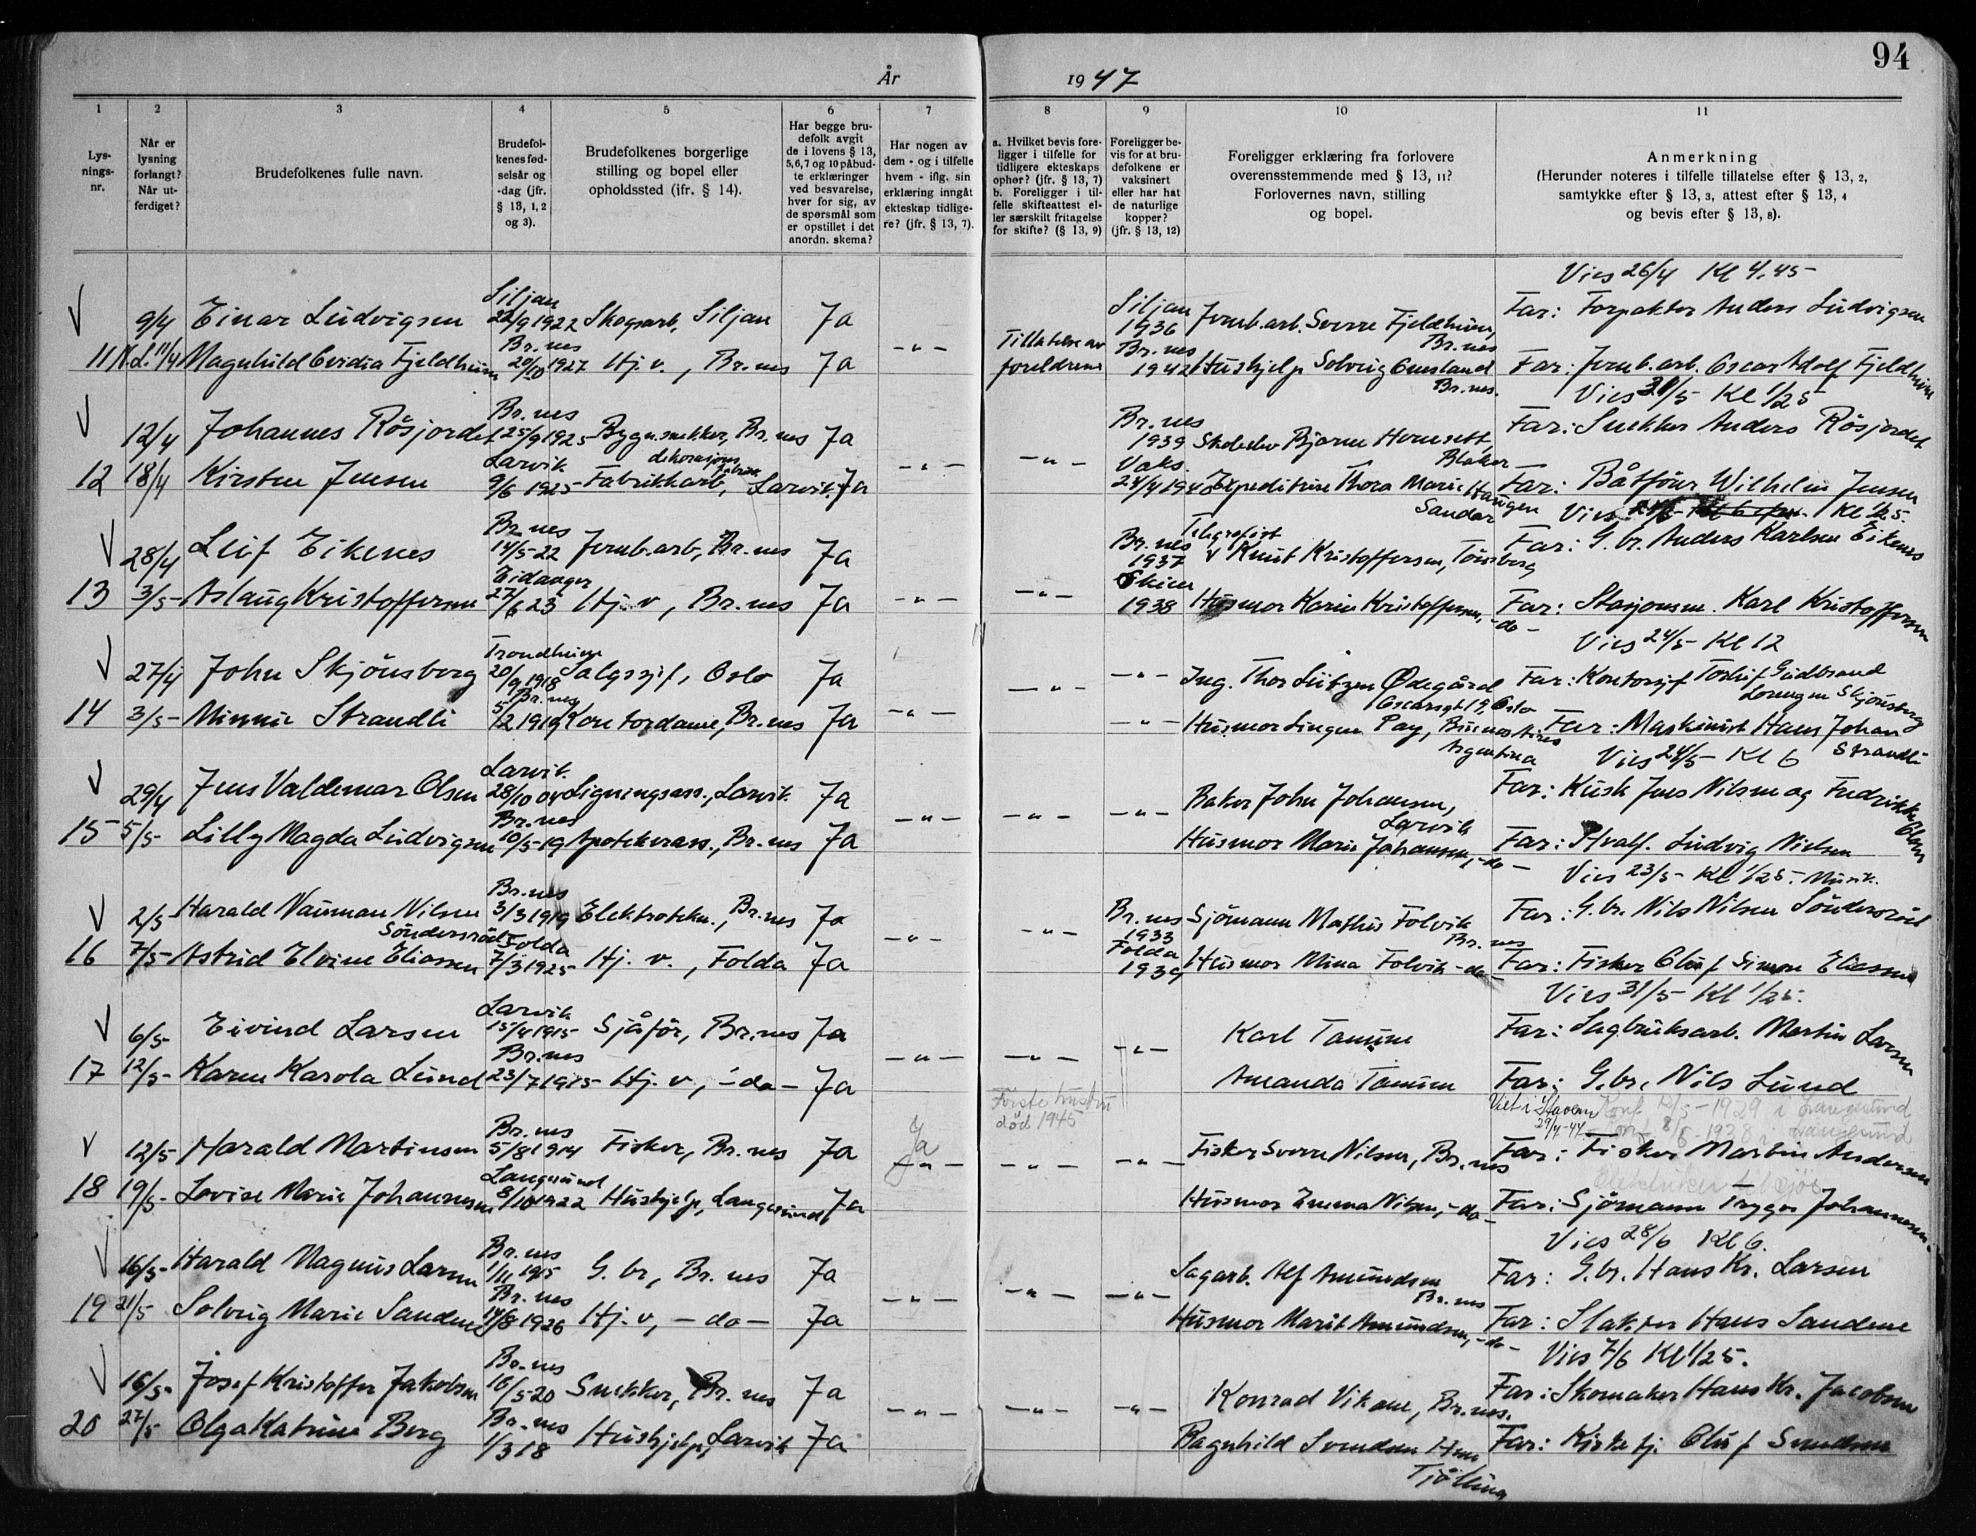 94
År 1947
1 2 3 4 5 6 7 8 9 10 11
Lys-
nings-
nr.
Når er
lysning
forlangt?
Når ut-
ferdiget?
Brudefolkenes fulle navn.
Brudefol-
kenes fød-
selsår og
-dag (jfr.
§ 13, 1, 2
og 3).
Brudefolkenes borgerlige
stilling og bopel eller
opholdssted (ifr. § 14).
Har begge bru-
defolk avgit
de i lovens § 13,
5,6,7 og 10 påbud-
te erklæringer
ved besvarelse,
hver for sig, av
de spørsmål som
er opstillet i det
anordn. skema?
Har nogen av
dem - og i tilfelle
hvem - iflg. sin
erklæring inngåt
ekteskap tidlige-
re? (jfr. § 13, 7).
a. Hvilket bevis fore-
ligger i tilfelle for
tidligere ekteskaps
ophør? (jfr. § 13, 7)
b. Foreligger i til-
felle skifteattest el-
ler særskilt fritagelse
for skifte? (§ 13, 9)
Foreligger be-
vis for at bru-
defolkene er
vaksinert
eller har hat
de naturlige
kopper?
(jfr. § 13, 12)
Foreligger erklæring fra forlovere
overensstemmende med § 13, 11?
Forlovernes navn, stilling
og bopel.
Anmerkning
(Herunder noteres i tilfelle tillatelse efter § 13, 2,
samtykke efter § 13, 3, attest efter § 13, 4
og bevis efter § 13, 8).
Vies 26/4 Kl 4.45
9/4 Einar Ludvigsen Siljan 22/9 1922 Skogsarb, Siljan Ja Siljan 1936 Jernb.arb. Sverre Fjeldheim, Br.nes Far: Forpakter Anders Ludvigsen
11 11/4 Magnhild Fjeldheim Br.nes 20/10 1927 Hj. v., Br.nes Ja -"- Tillatelse av foreldrene Br.nes 1942 Hushjelp Solveig Omsland Br.nes. Far: Jernb.arb. Oscar Adolf Fjeldheim
Vies 31/5 Kl 1/2 5
12/4 Johannes Røsjordet Br.nes 25/9 1925 Bygn.snekker, Br.nes Ja Br.nes 1939 Skoleelev Bjarne Blaker Far: Snekker Anders Røsjordet
12 18/4 Kirsten Jensen Larvik 9/6 1925 dekorasjons Fabrikkarb, Larvik Ja -"- -"- Vaks. 24/4 Expeditrise Thora Marie Haugen Sandar Far: Båtfører Wilhelm Jensen
Vies Kl 1/2 5.
28/4 Leif Eikenes Br.nes 14/5-22 Jernb.arb, Br.nes Ja Br.nes 1937 Telegrafist Knut Kristoffersen, Tønsberg Far: G.br. Anders Karlsen Eikenes
13 3/5- Aslaug Kristoffersen Eidanger 27/6 23 Hj. v, Br.nes Ja -"- -"- Skien 1938 Husmor Karin Kristoffersen, -do- Far: Stasjonsm. Karl Kristoffersen
Vies 24/5- Kl 12
27/4 John Skjønsberg Trondheim 20/9 1918 Salgssjef, Oslo Ja -"- -"- Ing. Thor Lützen Ødegård Oscarsgt 19, Oslo Far: Kontorsjef Torleif Gudbrand Skjønsberg
14 3/5- Minnie Strandli Br.nes 5/2 1919 Kontordame, Br.nes Ja -"- -"- Husmor Pay, Buenos Aires Argentina Far: Maskinist Hans Johan Strandli
Vies 24/5- Kl 6
29/4 Jens Valdemar Olsen Larvik 28/10 04 Ligningsass., Larvik. Ja Baker John Johansen, Larvik Far: Kusk Jens Nilsen og Fredrikke Olsen
15 5/5- Lilly Magda Ludvigsen Br.nes 10/5-19 Apotekerass., Br.nes Ja -"- -"- -"- Husmor Marie Johansen, -do- Far: Hvalf. Ludvig Nielsen
Vies 23/5- Kl 1/2 5. Musik.
2/5 Harald Nauman Nilsen Søndersrød Br.nes 3/3 1919 Elektrotekn., Br.nes Ja Br.nes 1933 Sjømann Mathis Folvik Br.nes Far: G.br. Nils Nilsen Søndersrød
16 7/5- Astrid Elvine Eliassen Folda 7/3 1925 Hj. v., Folda Ja -"- -"- Folda 1939 Husmor Mina Folvik -do- Far: Fisker Oluf Simon Eliassen
Vies 31/5- Kl 1/2 5.
6/5- Eivind Larsen Larvik 15/4 1915 Sjåfør, Br.nes Ja Karl Tamme Far: Sagbruksarb. Martin Larsen
17 12/5- Karen Karola Lund Br.nes 23/7 1915 Hj. v, -do- Ja -"- -"- -"- Amanda Tamme Far: G.br. Nils Lund
Første hustru død 1945
Viet i Stavern 29/4-47 Konf 1929 i Langesund
Konf 1938 i Langesund
12/5 Harald Martinsen Br.nes 5/8 1914 Fisker, Br.nes Ja Ja Fisker Sverre Nilsen, Br.nes Far: Fisker Martin Andersen
18 19/5- Lovise Marie Johannesen Langesund 8/10 1922 Hushjelp, Langesund, Ja -"- -"- -"- Husmor Emma Nilsen, -do- Far: Sjømann Trygve Johannesen.
Vies 28/6 Kl 6.
16/5- Harald Magnus Larsen Br.nes 1/11 1915 G. br, Br. nes Ja Sagarb. Alf Amundsen Br.nes Far: G.br. Hans Kr. Larsen
19 21/5 Solveig Marie Sandene Br.nes 14/8 1926 Hj. v, -do- Ja -"- -"- -"- Husmor Marit Amundsen, -do- Far: Slakter Hans Sandene
Vies 7/6 Kl 1/2 5.
16/5- Josef Kristoffer Jakobsen Br.nes 16/5-20 Snekker, Br. nes Ja Konrad Vikane, Br.nes. Far: Skomaker Hans Kr. Jacobsen
20 27/5 Olga Katrine Berg Br.nes 1/3 18 Hushjelp, Larvik Ja -"- -"- -"- Ragnhild Svendsen Hem Tjølling Far: Kirketj. Oluf Svendsen